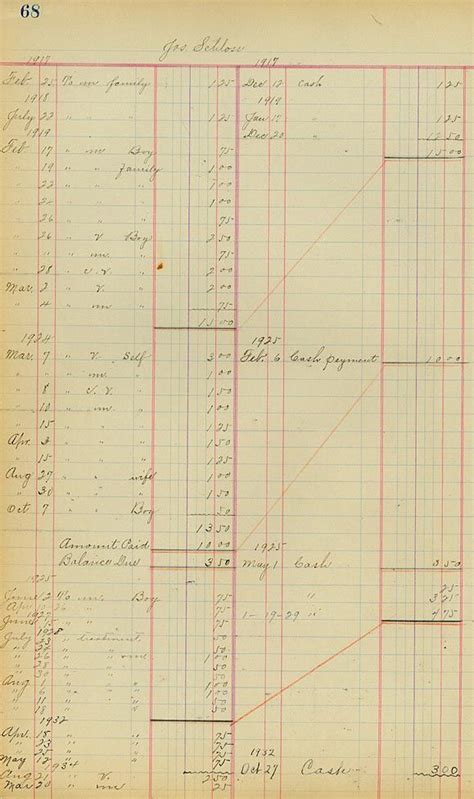 68
Jos.
1917
Feb 25 To m family 1 25
1918
July 22 " " " 1 25
1919
Feb 17 " m Boy 75
" 19 " " family 1 00
" 22 " " " 1 00
" " " " 1 00
" 26 " " " 75
" 26 " V. Boy 2 50
" " " m " 75
" 28 " " 2 00
Mar. 2 " V " 2 00
" 4 " m " 75
15 00
1924
Mar. 7 " V. Self 3 00
" " " m. " 1 00
" 8 " " 1 50
" 10 " m. " 1 00
" 15 " " " 1 25
Apr. 3 " " " 1 50
" 15 " " " 1 25
Aug 27 " " wife 1 00
" 30 " " " 1 50
Oct 7 " " Boy 50
13 50
Amount Paid 10 00
Balance Due 3 50
1925
June 2 To m. Boy 75
1927
1928
July 23 " treatment 50
Aug 1
" 11 " 50
" 18 " 50
1932
Apr. 18 " " 75
" 23 " " 75
" 25 " " 75
May 12 " " 75
Aug 21 " V. " 2 50
Mar 20 " m " 25
1917
Dec 12 Cash 1 25
1919
Jan 12 " 1 25
Dec 20 " 12 50
15 00
1925
Feb. 6 Cash payment 10 00
1925
May 1 Cash 3 50
25
1-19-29 " 4 75
1932
Oct 27 Cash 3 00